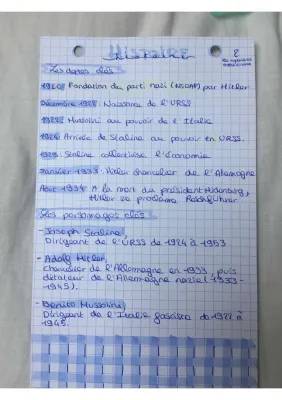 Histoire
2
Les dates clés
1920: Fondation du parti nazi (NSDAP) par Hitler
Décembre 1922: Naissance de l'URSS
1922: Mussolini au pouvoir de l'Italie
Arrivée de Staline au pouvoir en URSS.
Staline collectivise l'économie
Janvier 1933: Hitler chancelier de l'Allemagne
Août 1934: A la mort du président Hidenburg,
Hitler se proclame Reichführer
Les personnages clés
- Joseph Staline,
Dirigeant de l'URSS de 1924 à 1953
- Adolf Hitler,
chancelier de l'Allemagne en 1933, puis
dictateur de l'Allemagne nazie (1933-
1945).
- Benito Mussolini,
Dirigeant de l'Italie fasciste de 1922 à
1945.